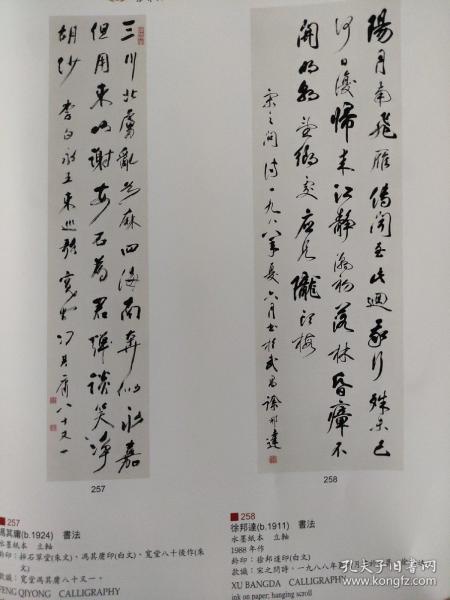 三川北虜亂如麻四海南奔似永嘉
但用東山謝安石為君談笑淨
胡沙 李白永王東巡歌 寬堂馮其庸八十又一
257
陽月南飛雁傳聞至此迴我行殊未已
何日復歸來江靜潮初落林昏瘴不
開明朝望鄉處應見隴頭梅
宋之問詩一九八八年夏六月書於武昌徐邦達
258
257
馮其庸(b.1924) 書法
水墨紙本 立軸
鈐印：石草堂(朱文)、馮其庸印(白文)、寬堂八十後作(朱
文)
款識：寬堂馮其庸八十又一。
FENG QIYONG CALLIGRAPHY
258
徐邦達(b.1911) 書法
水墨紙本 立軸
1988 年作
鈐印：徐邦達印(白文)
款識：宋之問詩，一九八八年
XU BANGDA CALLIGRAPHY
ink on paper; hanging scroll
孔夫子旧书网